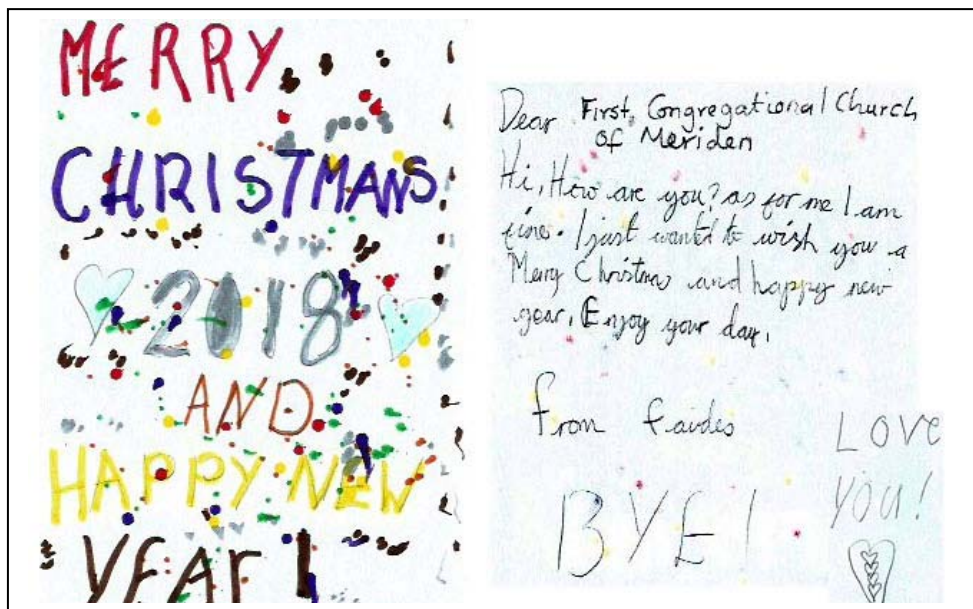 MERRY
CHRISTMANS
2018
AND
HAPPY NEW
YEAR!
Dear First Congregational Church
of Meriden
Hi, How are you? as for me I am
fine. I just wanted to wish you a
Merry Christmas and happy new
year. Enjoy your day.
from faides
BYE!
LOVE
YOU!